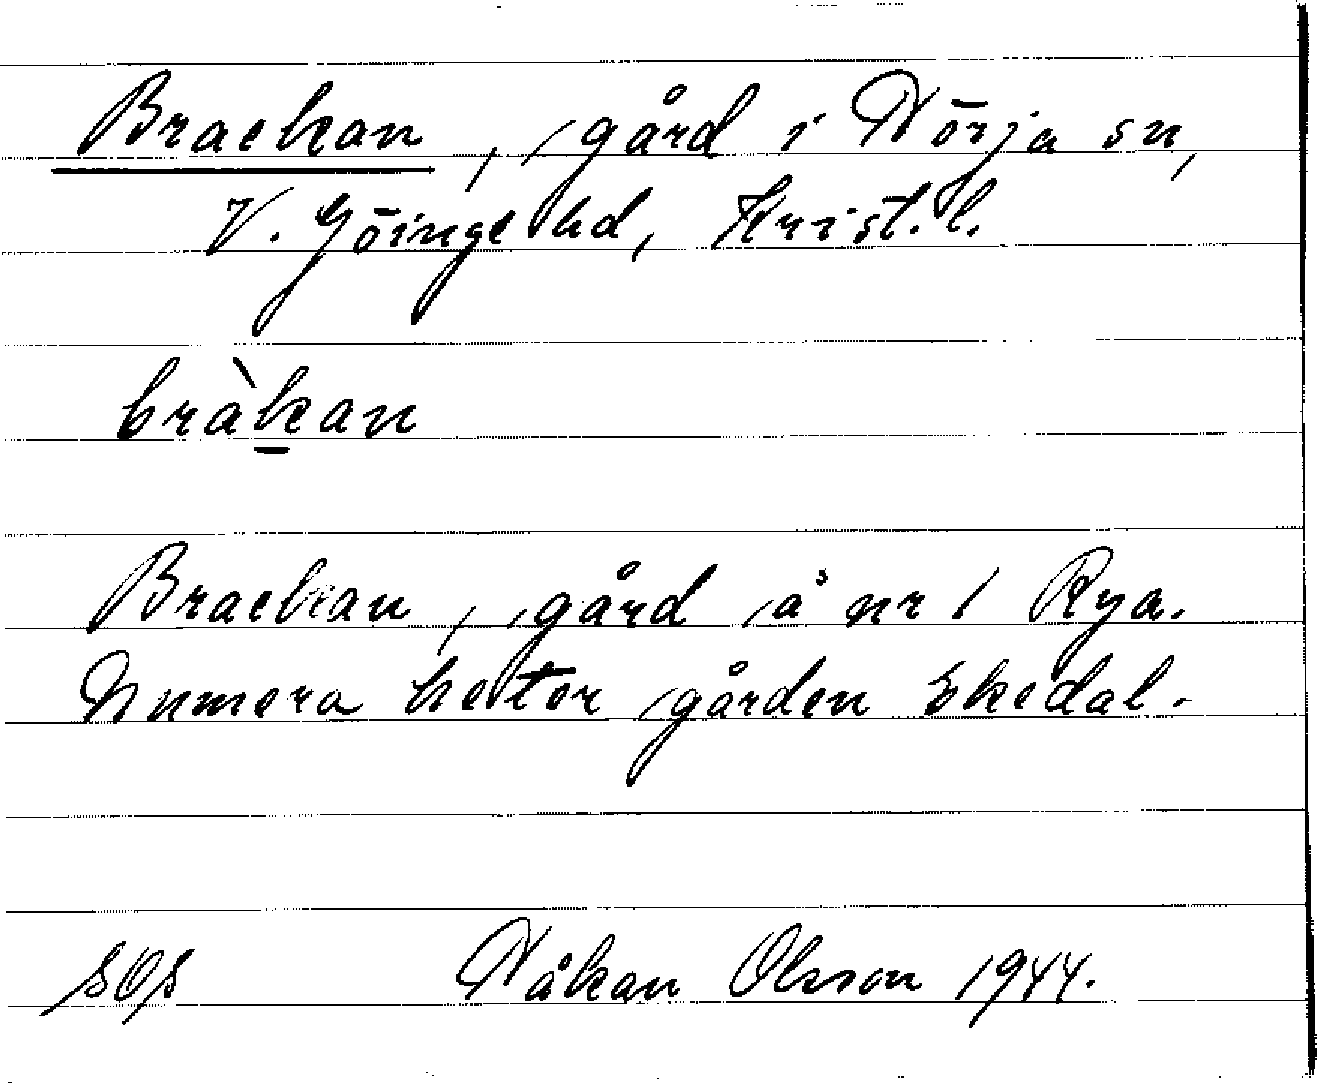 Brackan, gård i Hörja sn,
V. Göinge hd, Krist. l.
bràkan
Brackan, gård å nr 1 Rya.
Numera heter gården Ekedal.
SOS Håkan Olsson 1944.